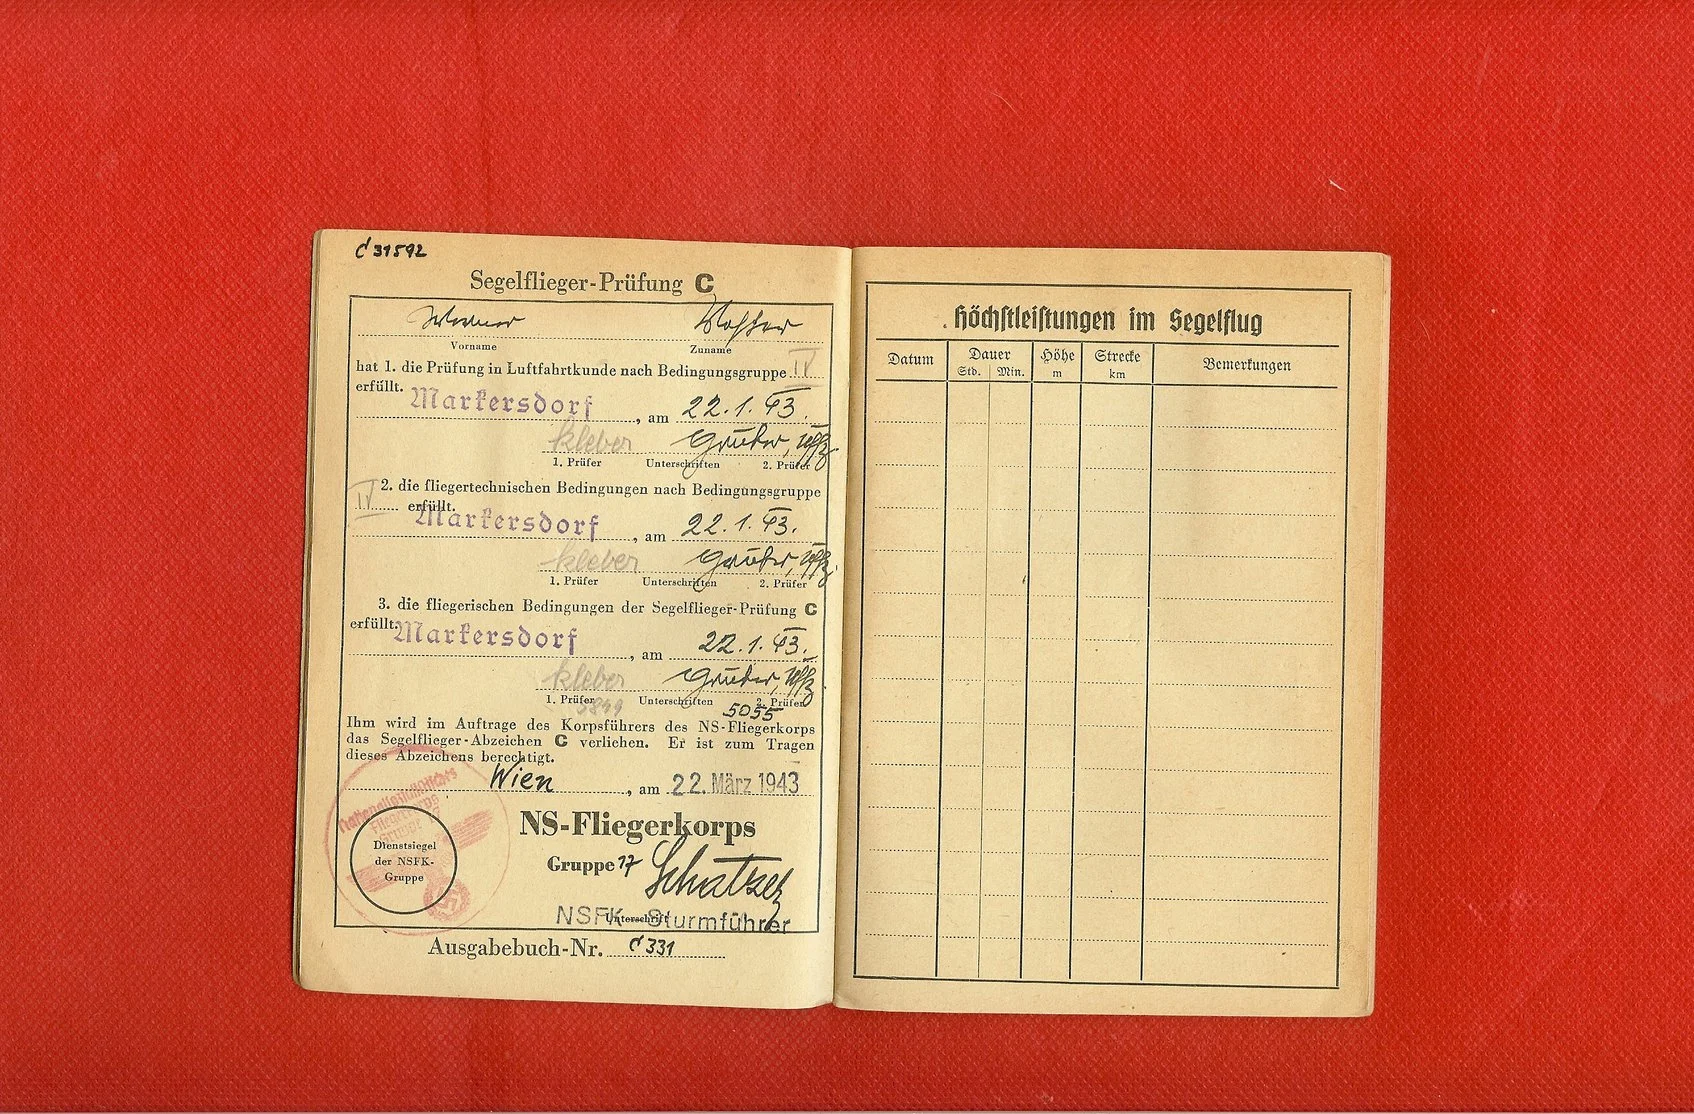 C 31592
Segelflieger-Prüfung C
Werner
Vorname Zuname
hat 1. die Prüfung in Luftfahrtkunde nach Bedingungsgruppe IV
erfüllt.
Markersdorf, am 22.1.43.
Kleber Gruber, Uffz
1. Prüfer Unterschriften 2. Prüfer
2. die fliegertechnischen Bedingungen nach Bedingungsgruppe
IV erfüllt.
Markersdorf, am 22.1.43.
Kleber Gruber, Uffz
1. Prüfer Unterschriften 2. Prüfer
3. die fliegerischen Bedingungen der Segelflieger-Prüfung C
erfüllt.
Markersdorf, am 22.1.43.
Kleber Gruber, Uffz
1. Prüfer Unterschriften 2. Prüfer
5055
Ihm wird im Auftrage des Korpsführers des NS-Fliegerkorps
das Segelflieger-Abzeichen C verliehen. Er ist zum Tragen
dieses Abzeichens berechtigt.
Wien, am 22. März 1943
Nationalsozialistisches
Fliegerkorps
Gruppe
Dienstsiegel
der NSFK-
Gruppe
NS-Fliegerkorps
Gruppe 17
Unterschrift
NSFK-Sturmführer
Ausgabebuch-Nr. C 331
Höchstleistungen im Segelflug
Datum Dauer Höhe Strecke Bemerkungen
Std. Min. m km